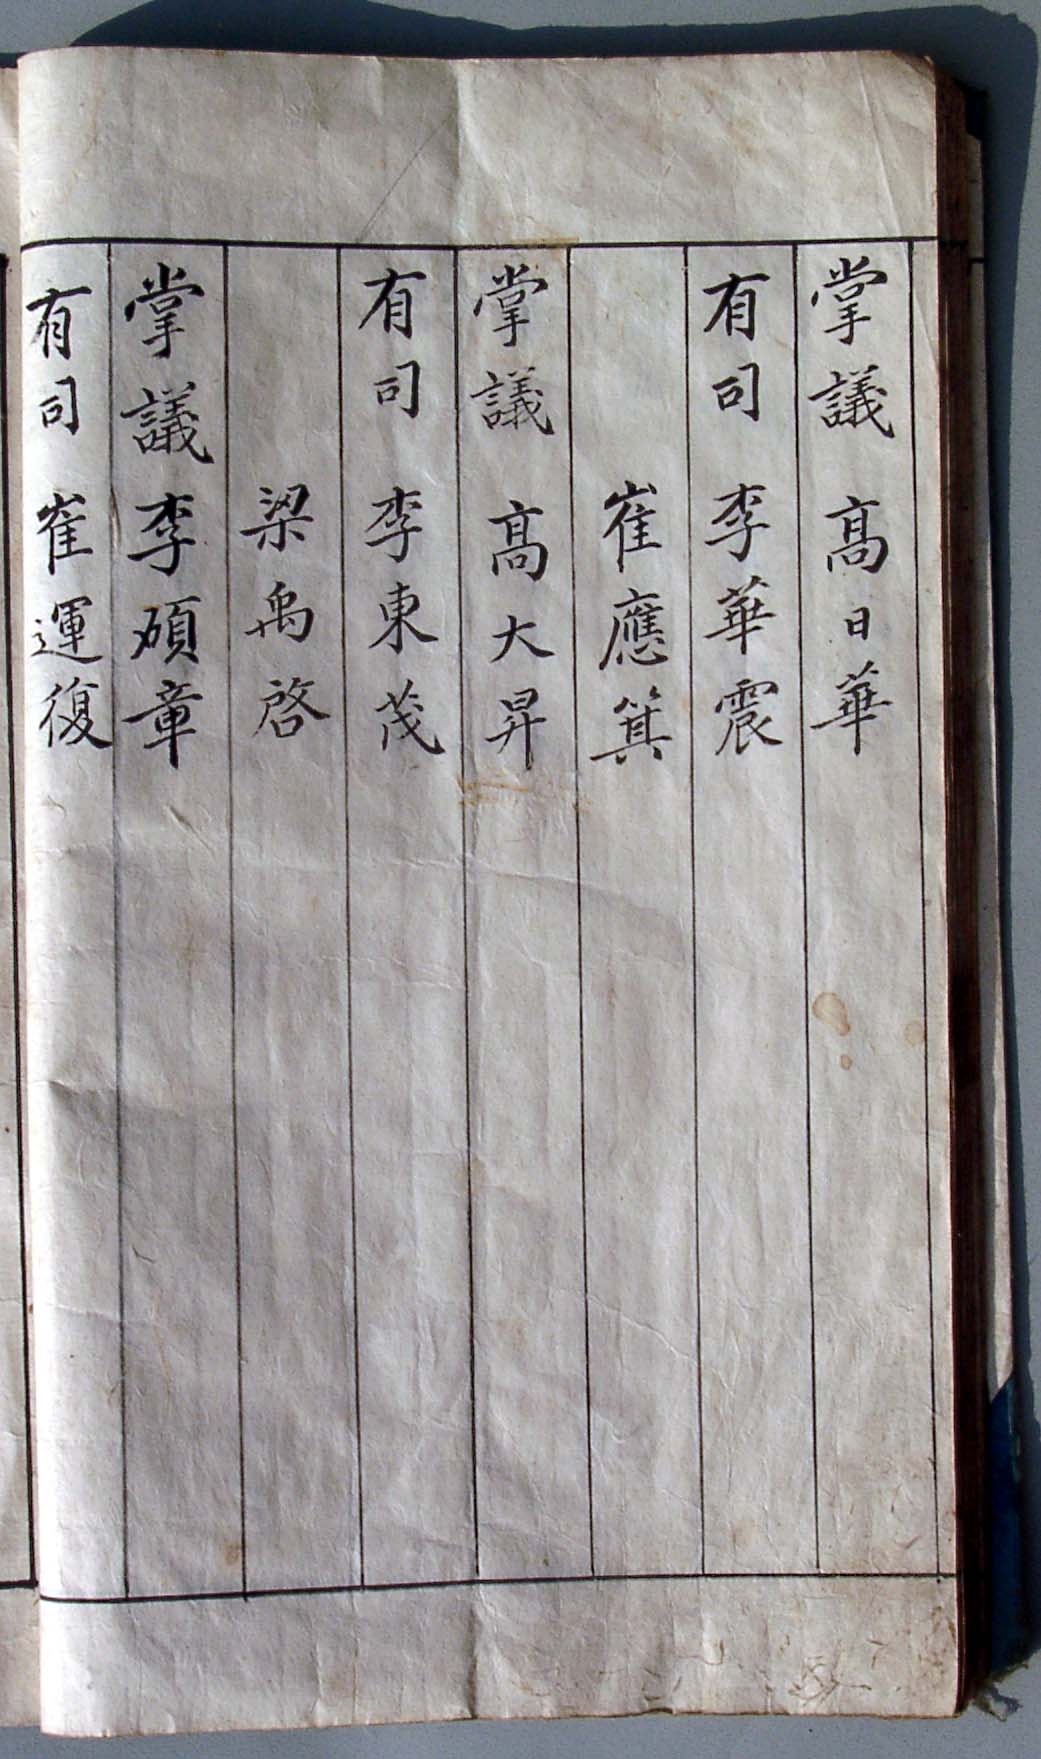 掌議 高日華
有司 李華震
崔應箕
掌議 高大昇
有司 李東茂
梁禹啓
掌議 李碩章
有司 崔運復